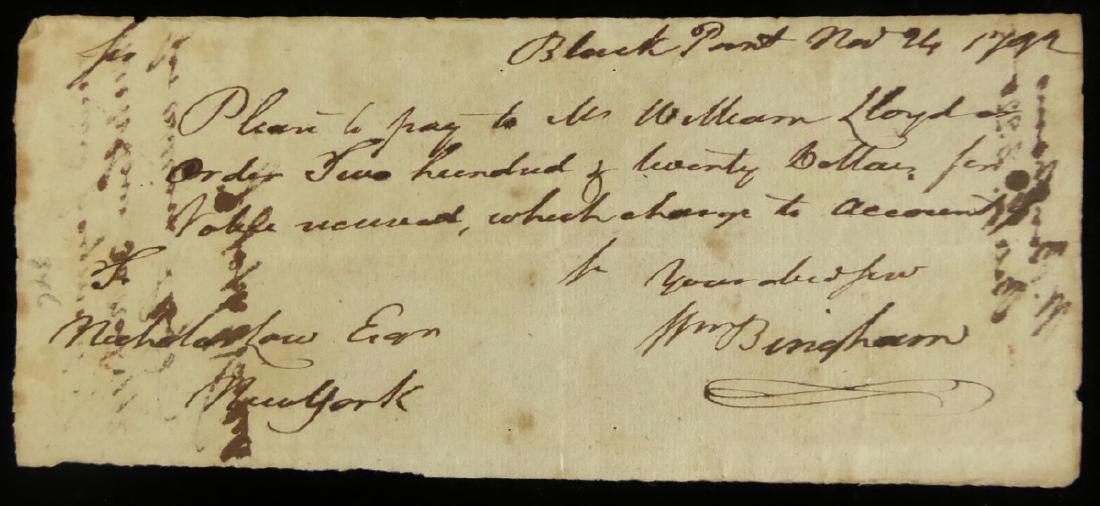 Black Point Nov 24 1792
Sir
Please to pay to Mr William Lloyd or
Order Two hundred & twenty Dollars for
Value received, which charge to account
Sr Your obed Serv
To
Nicholas Low Esqr Wm Bingham
New York